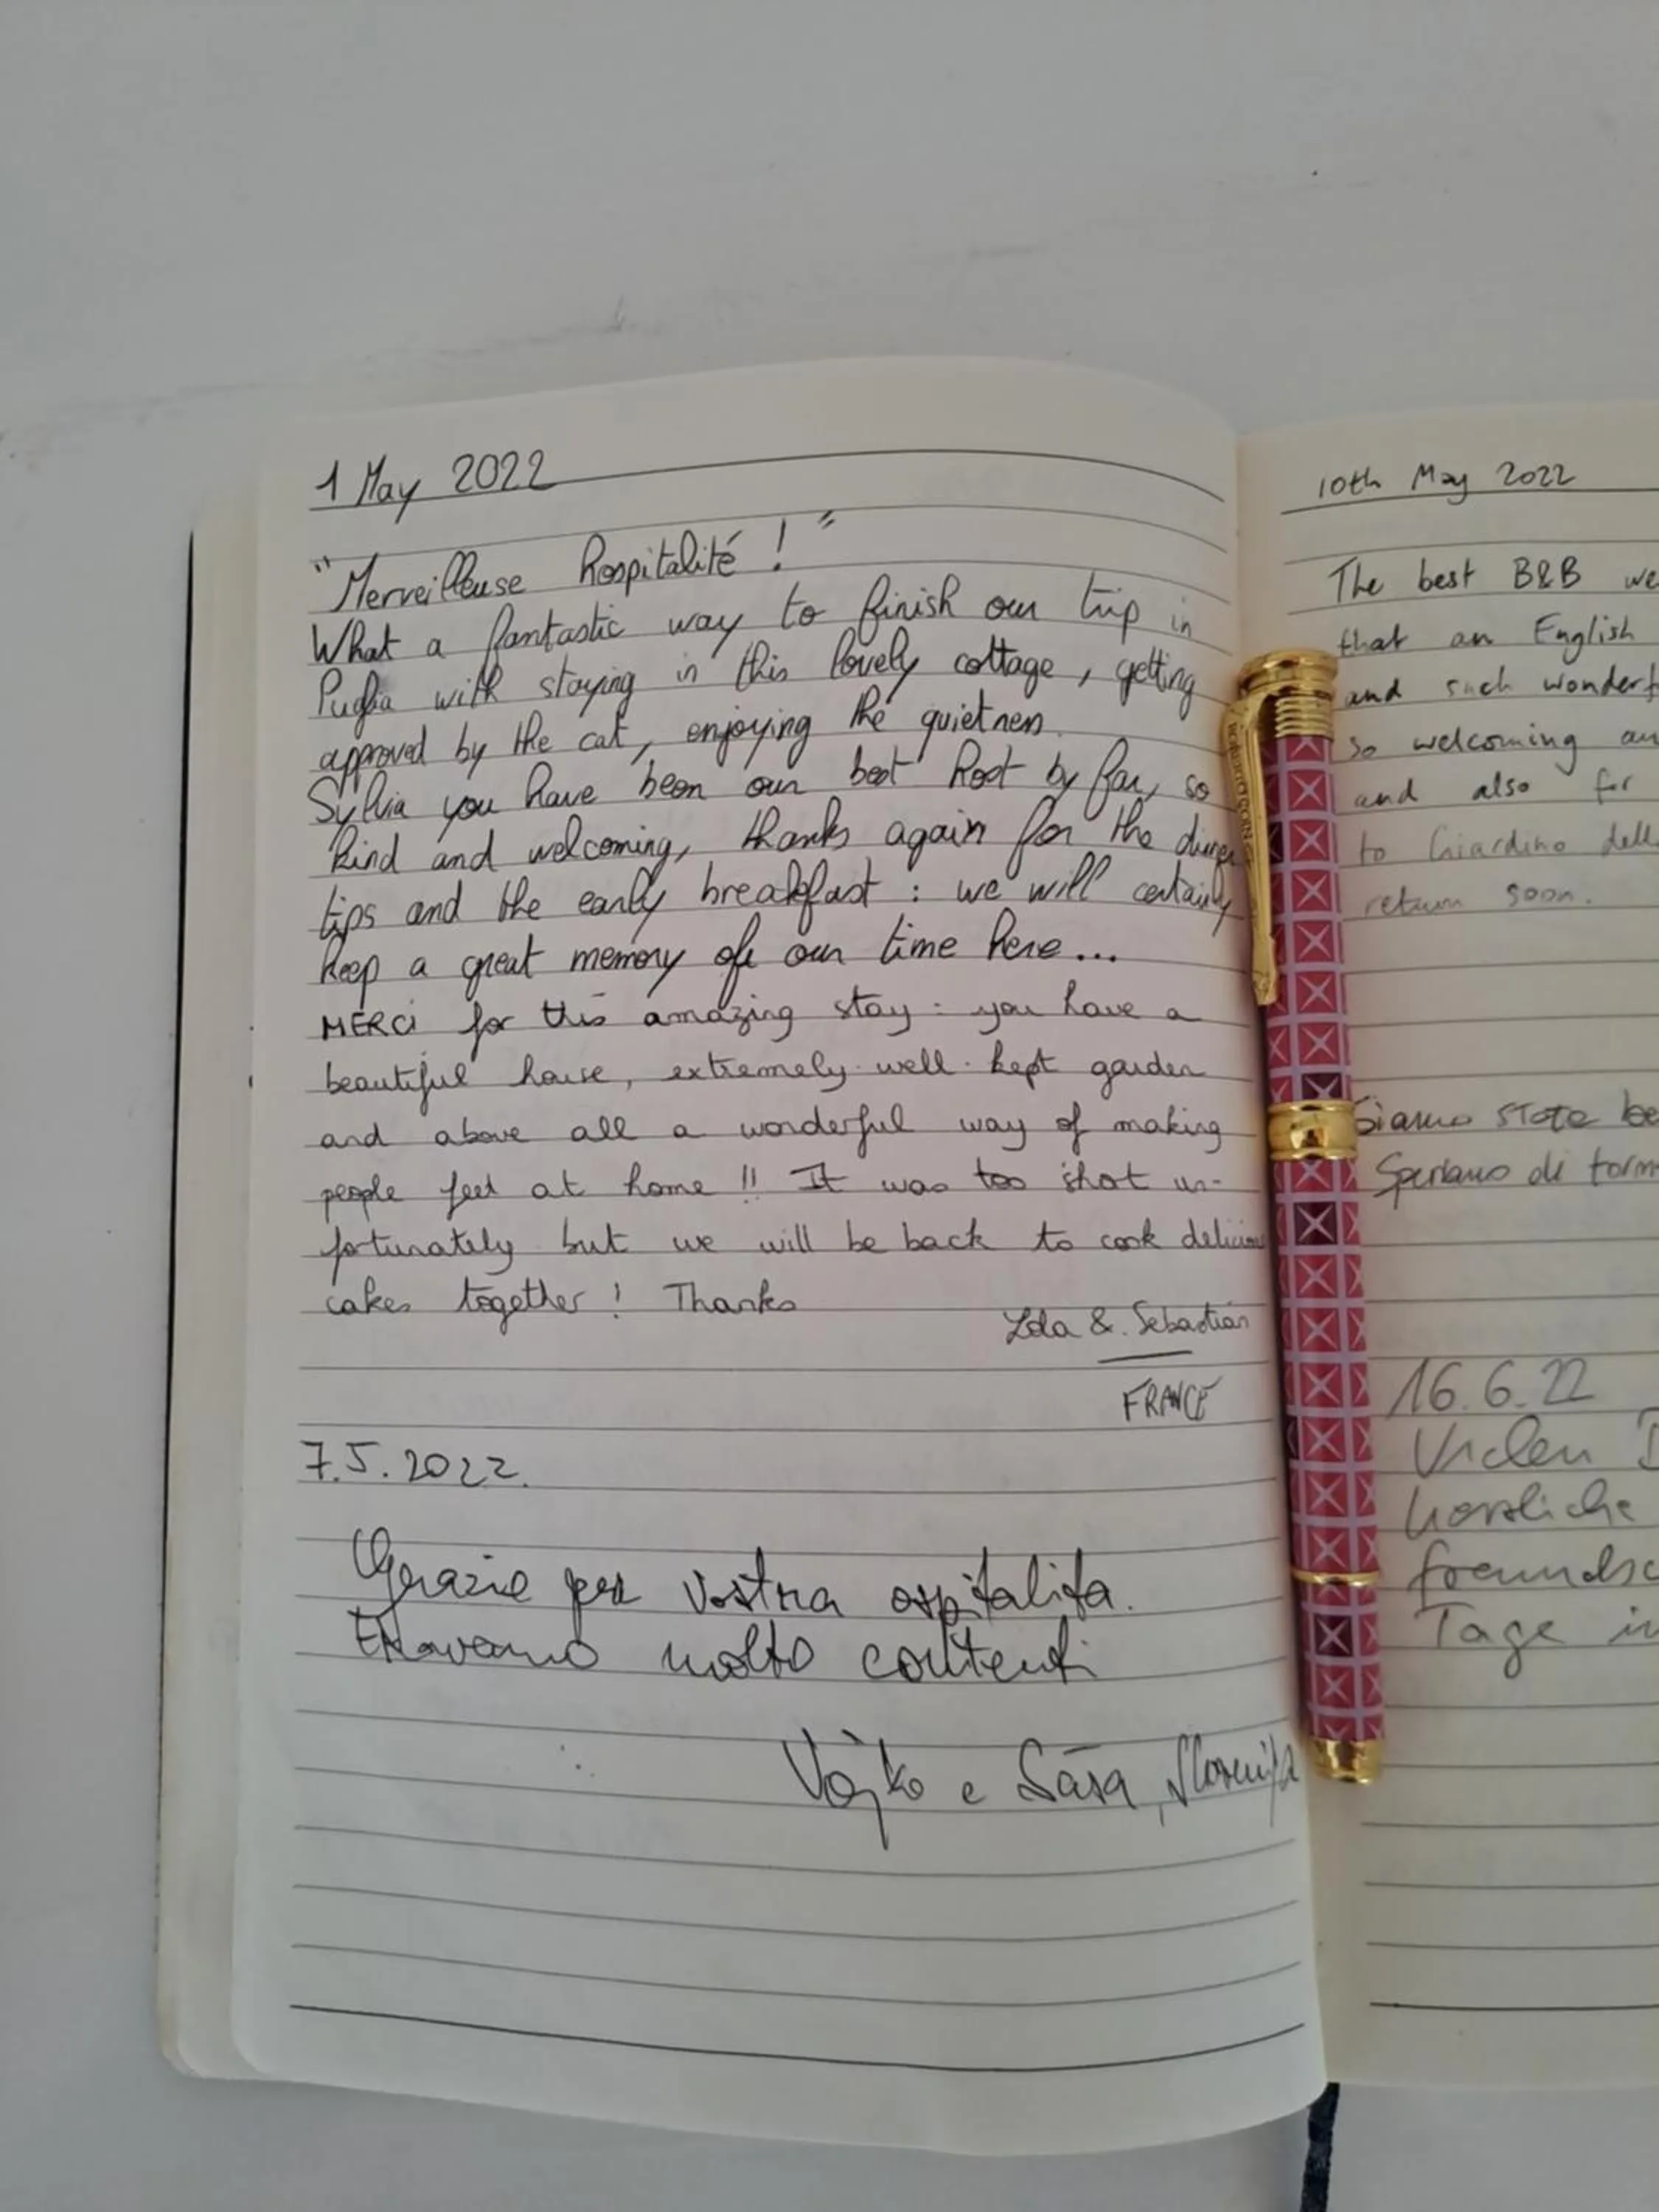 1 May 2022
"Merveilleuse hospitalité ! "
What a fantastic way to finish our trip in
Puglia with staying in this lovely cottage, getting
approved by the cat, enjoying the quietness.
Sylvia you have been our best host by far, so
kind and welcoming, thanks again for the diner
tips and the early breakfast : we will certainly
keep a great memory of our time here...
MERCI for this amazing stay : you have a
beautiful house, extremely well kept garden
and above all a wonderful way of making
people feel at home !! It was too short un-
fortunately but we will be back to cook delicious
cakes together ! Thanks
Lola & Sebastian
FRANCE
7.5.2022.
Grazie per vostra ospitalita.
Eravamo molto contenti
Vojko e Sasa, Slovenija
10th May 2022
The best B&B we
that an English
and such wonderf
so welcoming an
and also for
to Giardino dell
return soon.
Siamo state be
Speriamo di torn
16.6.22
Vielen D
herzliche
freundsc
Tage in